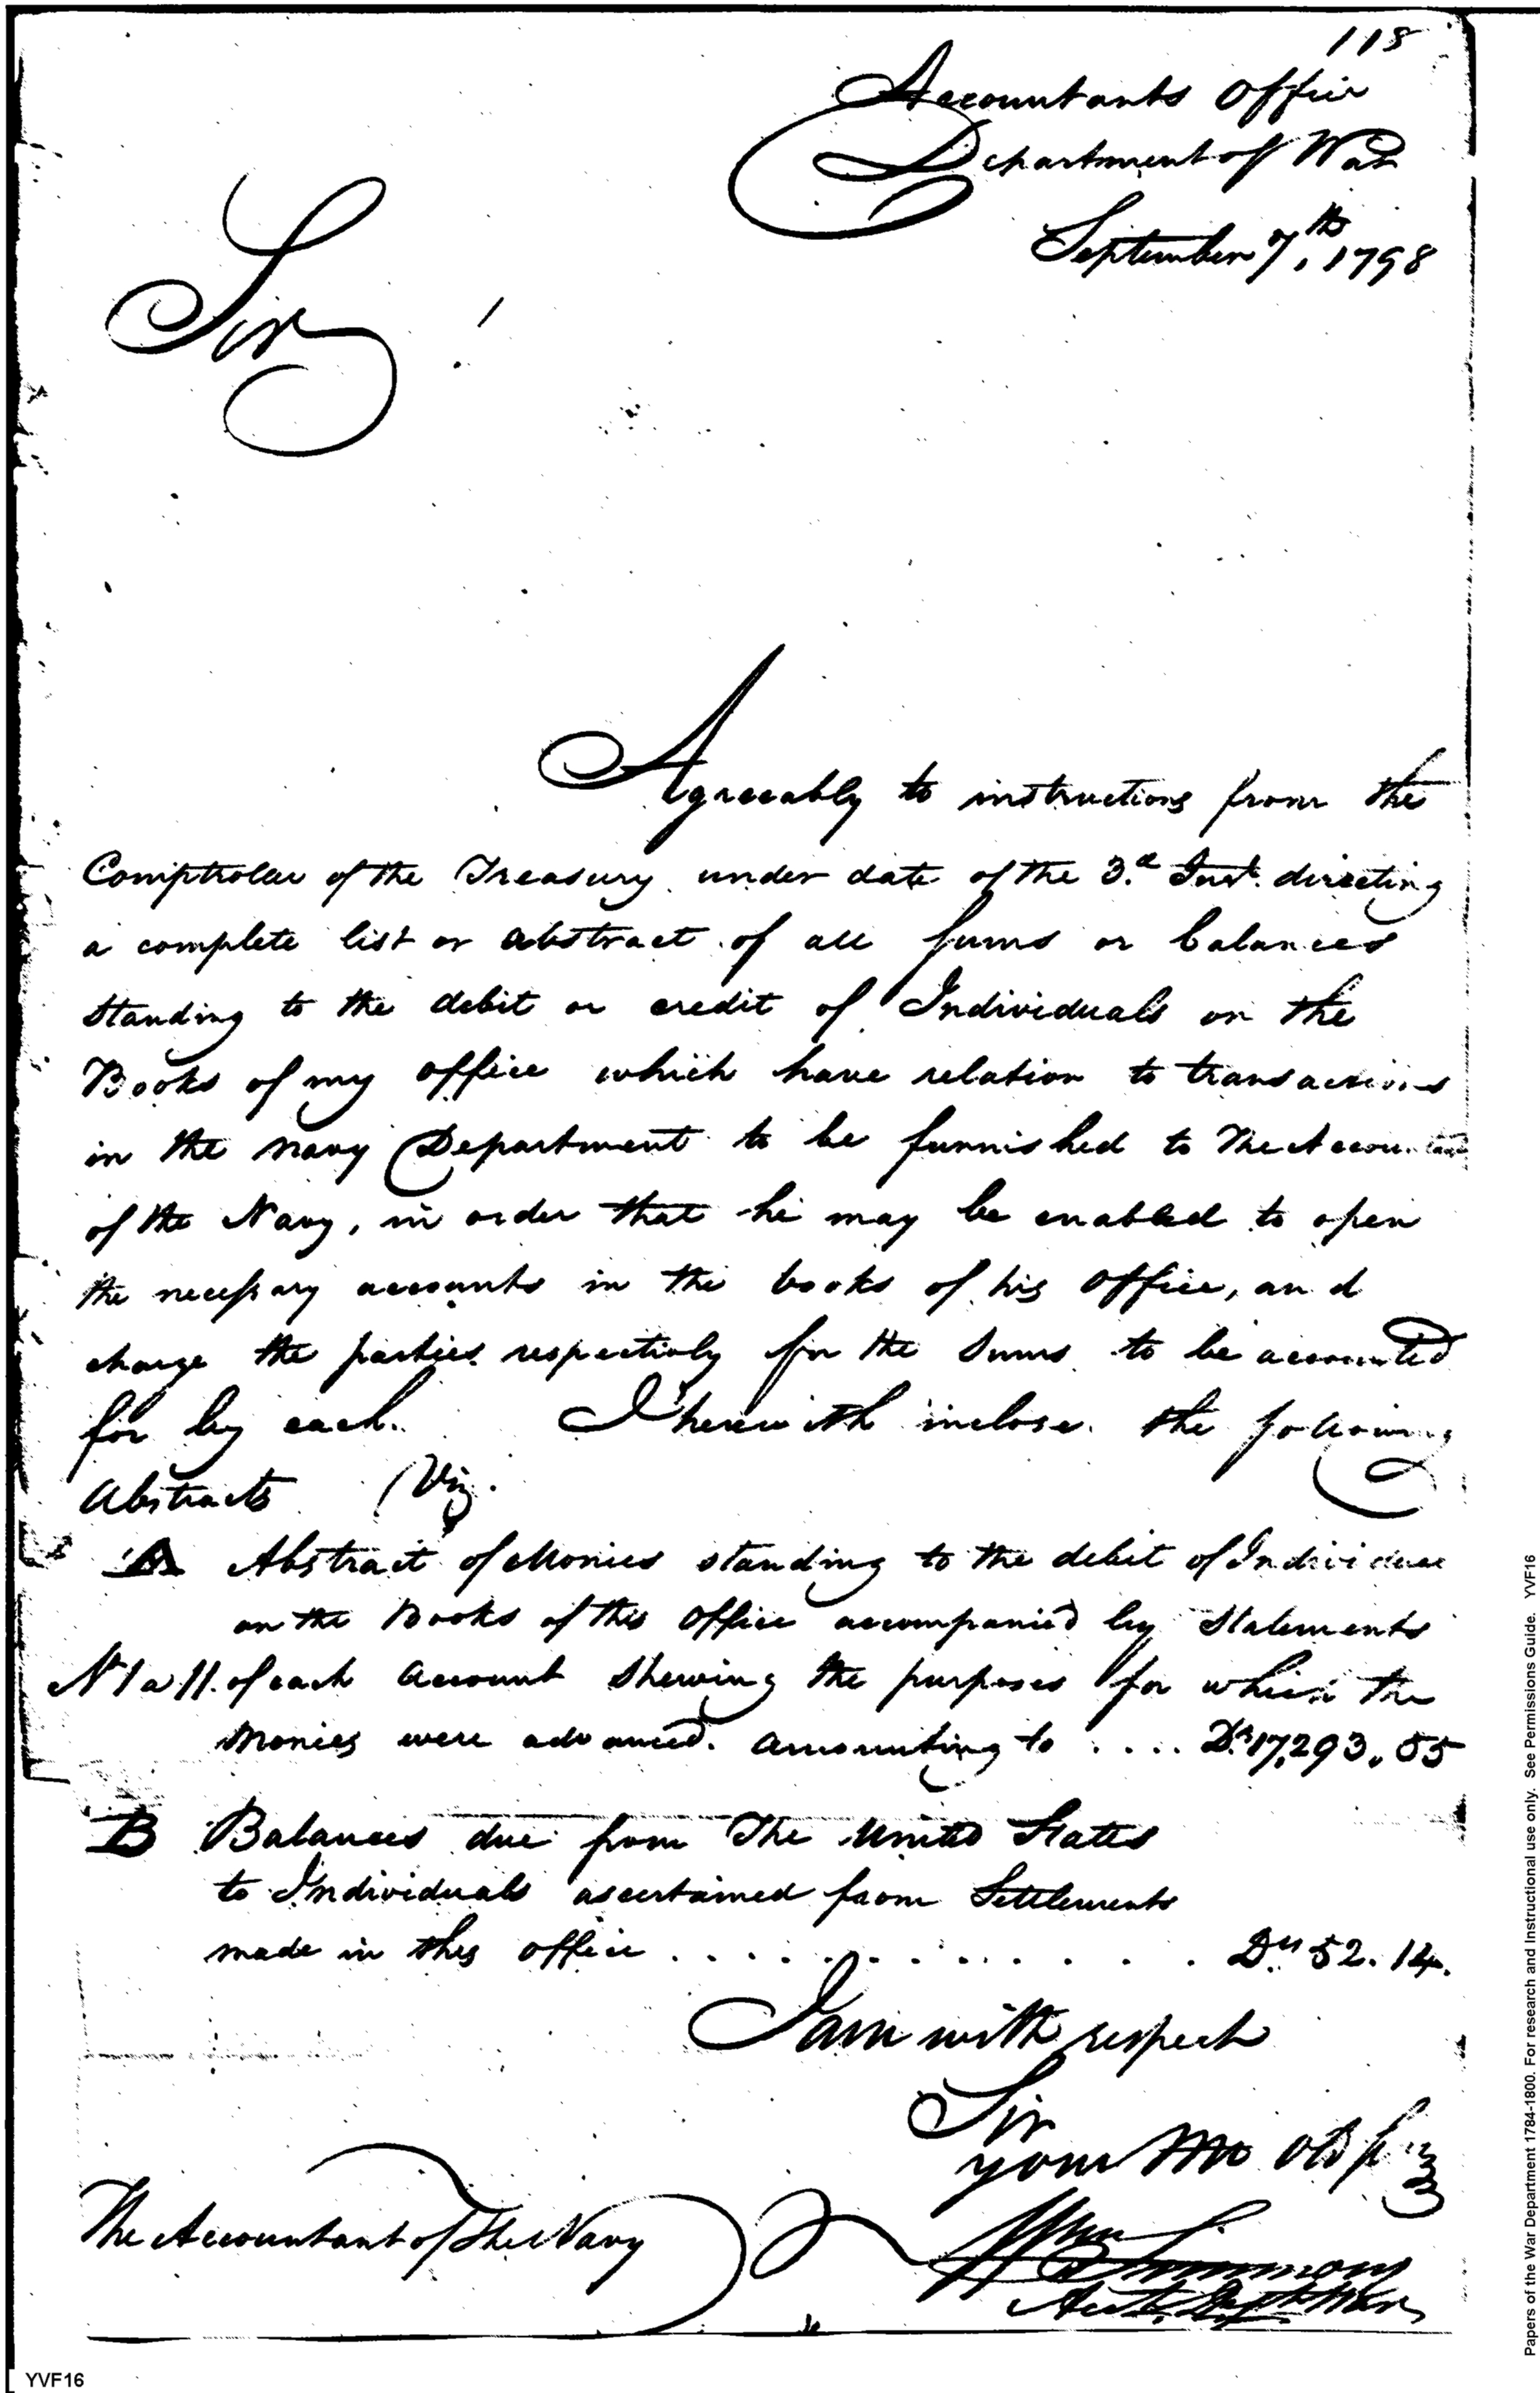 118
Accountants Office
Department of War
September 7th, 1798
Sir
Agreeably to instructions from the
Comptroller of the Treasury under date of the 3.d Inst. directing
a complete list or abstract of all sums or balances
standing to the debit or credit of Individuals on the
Books of my office which have relation to transactions
in the navy Department to be furnished to The Accountant
of the Navy, in order that he may be enabled to open
the necessary accounts in the books of his Office, and
charge the parties respectively for the Sums to be accounted
for by each. I herewith inclose the following
Abstracts Viz.
A Abstract of Monies standing to the debit of
on the Books of this Office accompanied by Statements
No 1 a 11. of each account shewing the purposes for which the
Monies were advanced. amounting to .... Drs 17,293.55
B Balances due from The United States
to Individuals ascertained from Settlements
made in this office . . . . . . . . . . . . Drs 52.14.
I am with respect
Sir
your Mo Ob
The Accountant of The Navy
Wm Simmons
Acct. Dept War
YVF16
Papers of the War Department 1784-1800. For research and Instructional use only. See Permissions Guide. YVF16